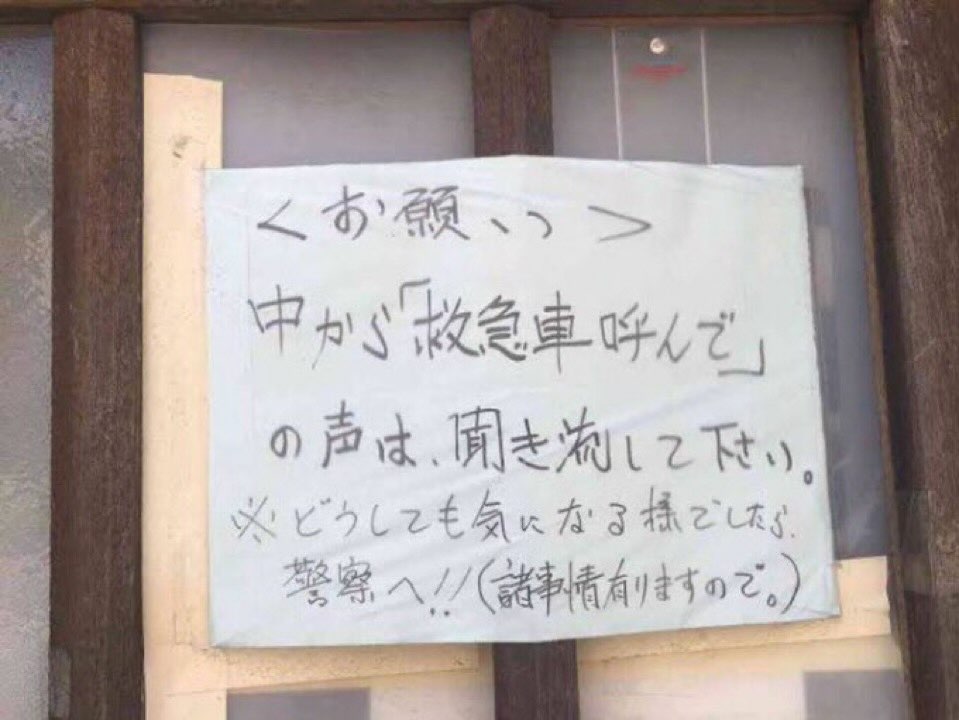 ＜お願い＞
中から「救急車呼んで」
の声は、聞き流して下さい。
※どうしても気になる様でしたら、
警察へ!!(諸事情有りますので。)